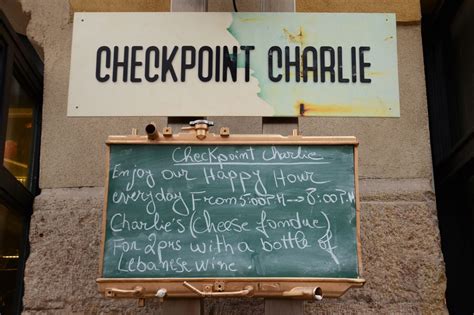 CHECKPOINT CHARLIE
Checkpoint Charlie
Enjoy our Happy Hour
everyday From 5:00PM → 8:00P.M
Charlie's (Cheese fondue)
For 2prs with a bottle of
Lebanese wine